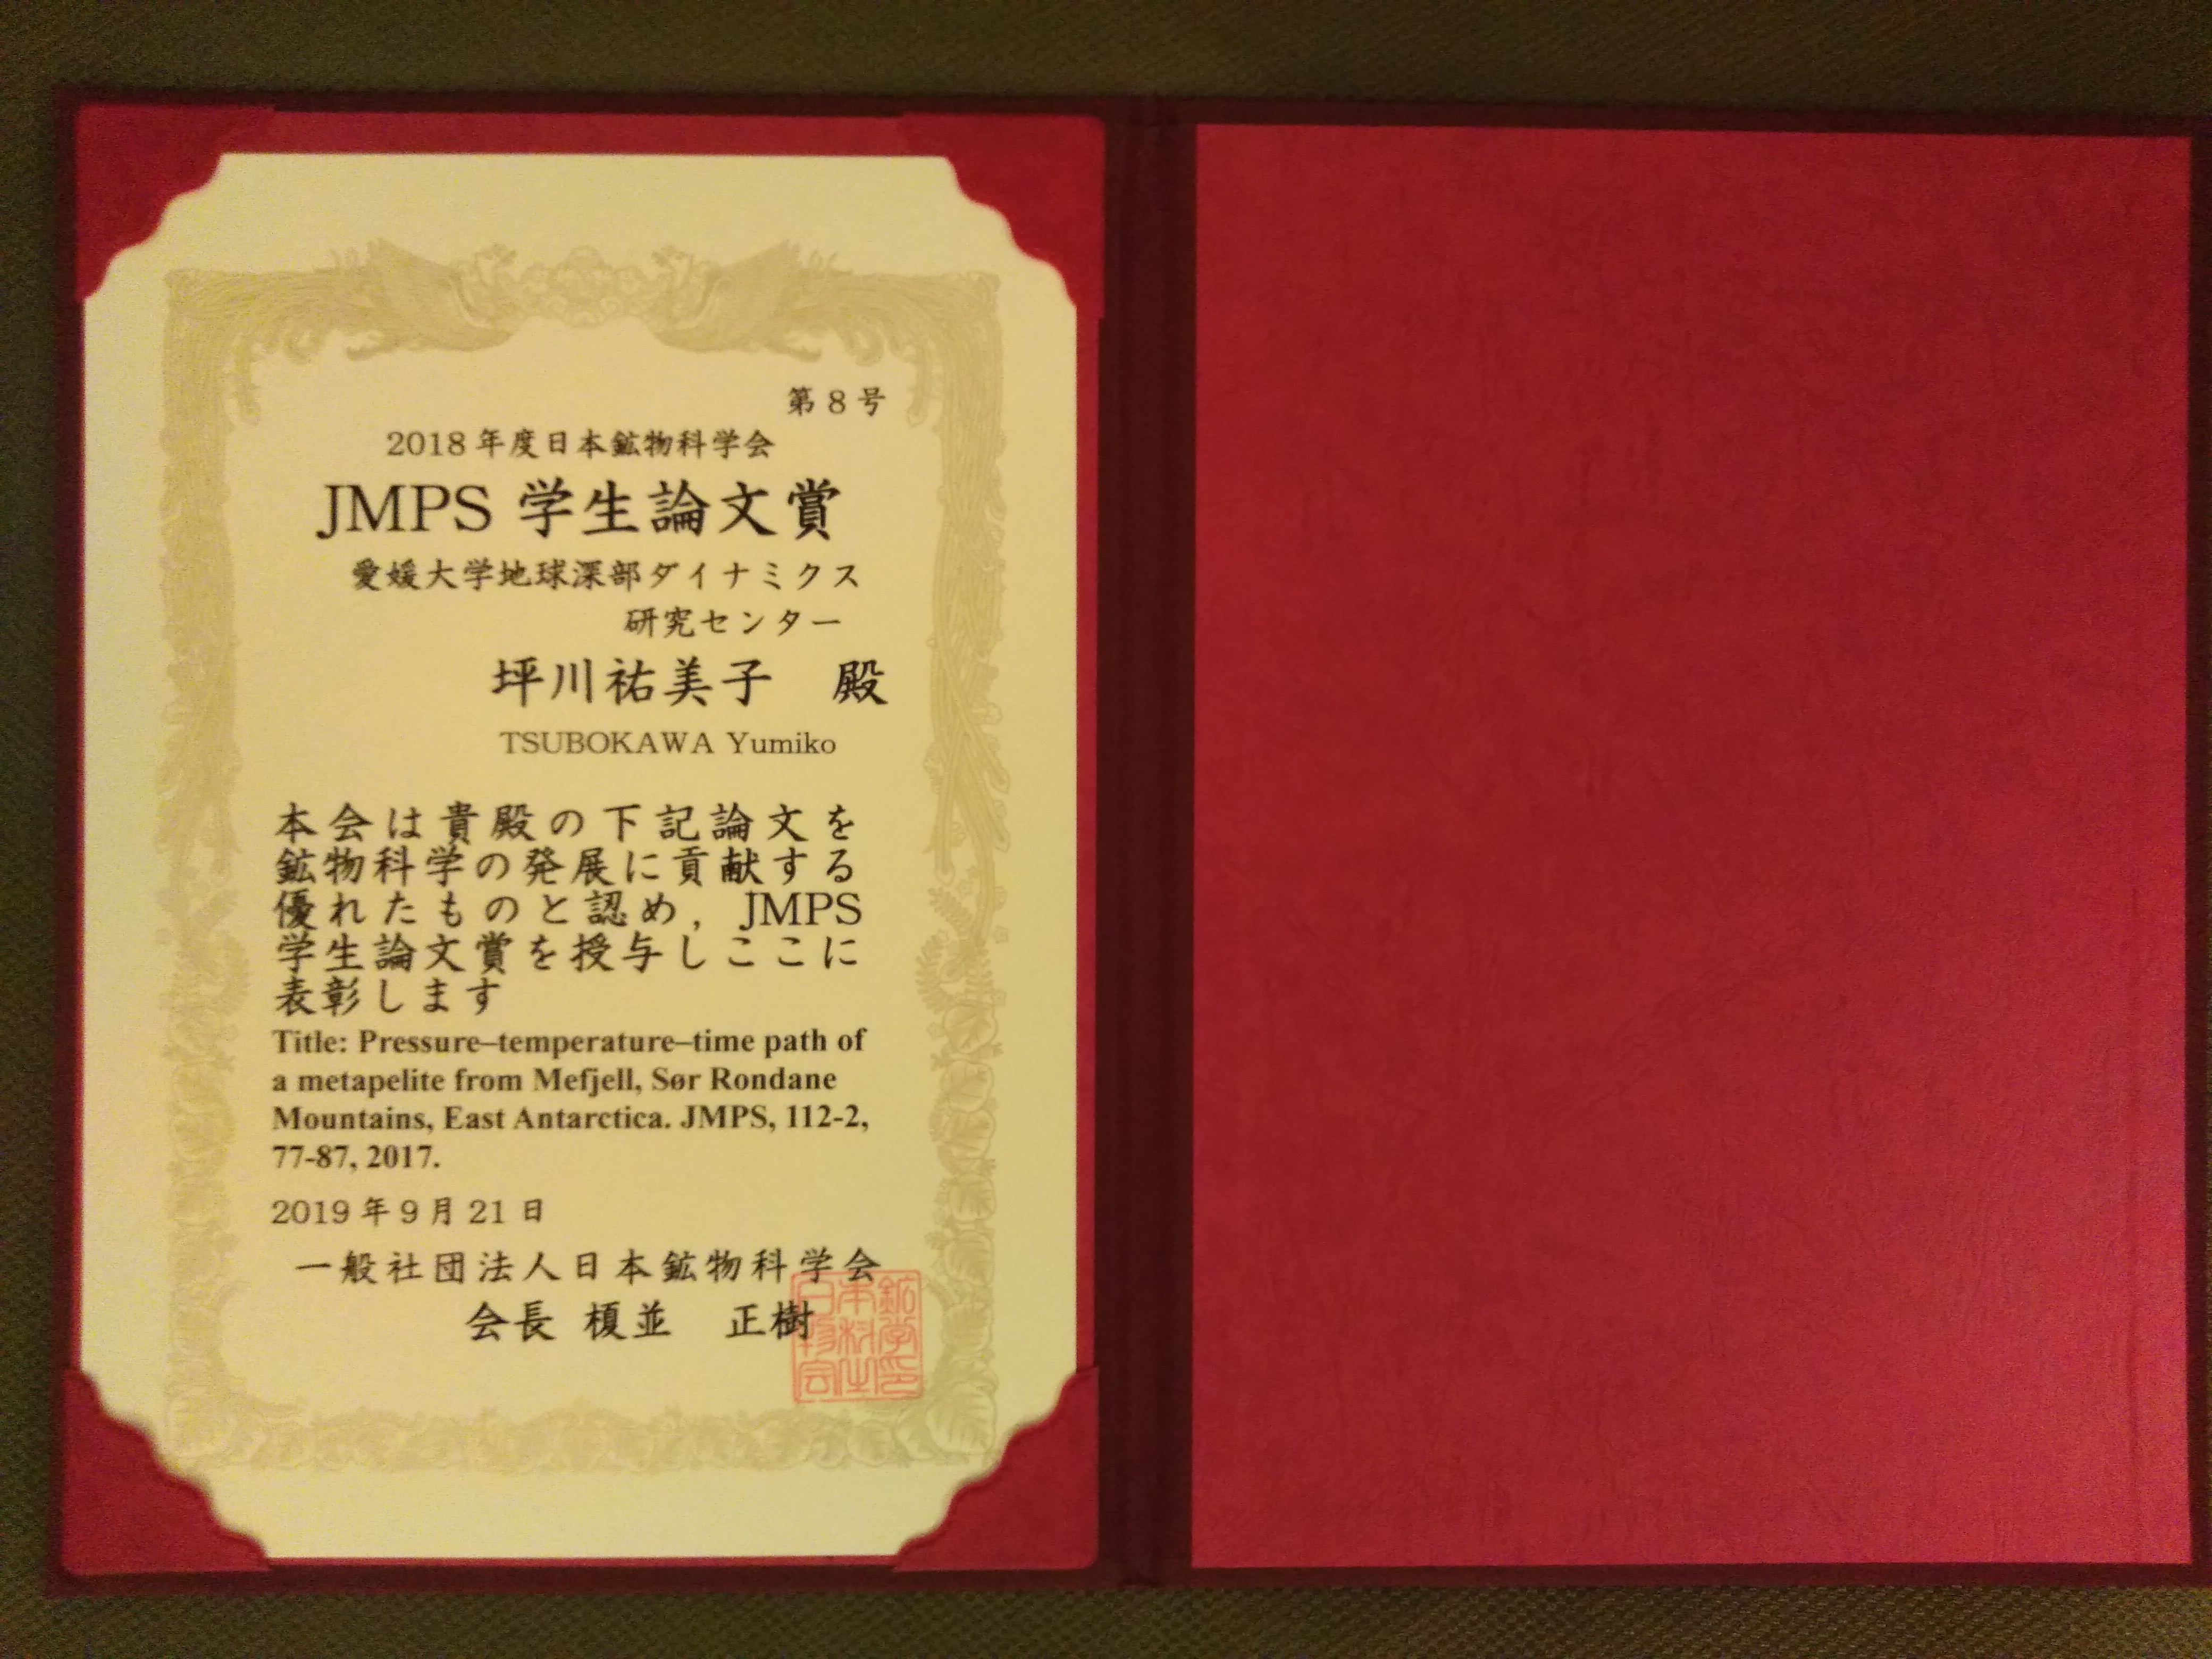 第 8 号
2018 年度日本鉱物科学会
JMPS 学生論文賞
愛媛大学地球深部ダイナミクス
研究センター
坪川祐美子　殿
TSUBOKAWA Yumiko
本会は貴殿の下記論文を
鉱物科学の発展に貢献する
優れたものと認め，JMPS
学生論文賞を授与しここに
表彰します
Title: Pressure–temperature–time path of
a metapelite from Mefjell, Sør Rondane
Mountains, East Antarctica. JMPS, 112-2,
77-87, 2017.
2019 年 9 月 21 日
一般社団法人日本鉱物科学会
会長 榎並　正樹
日本鉱
物科学
会之印